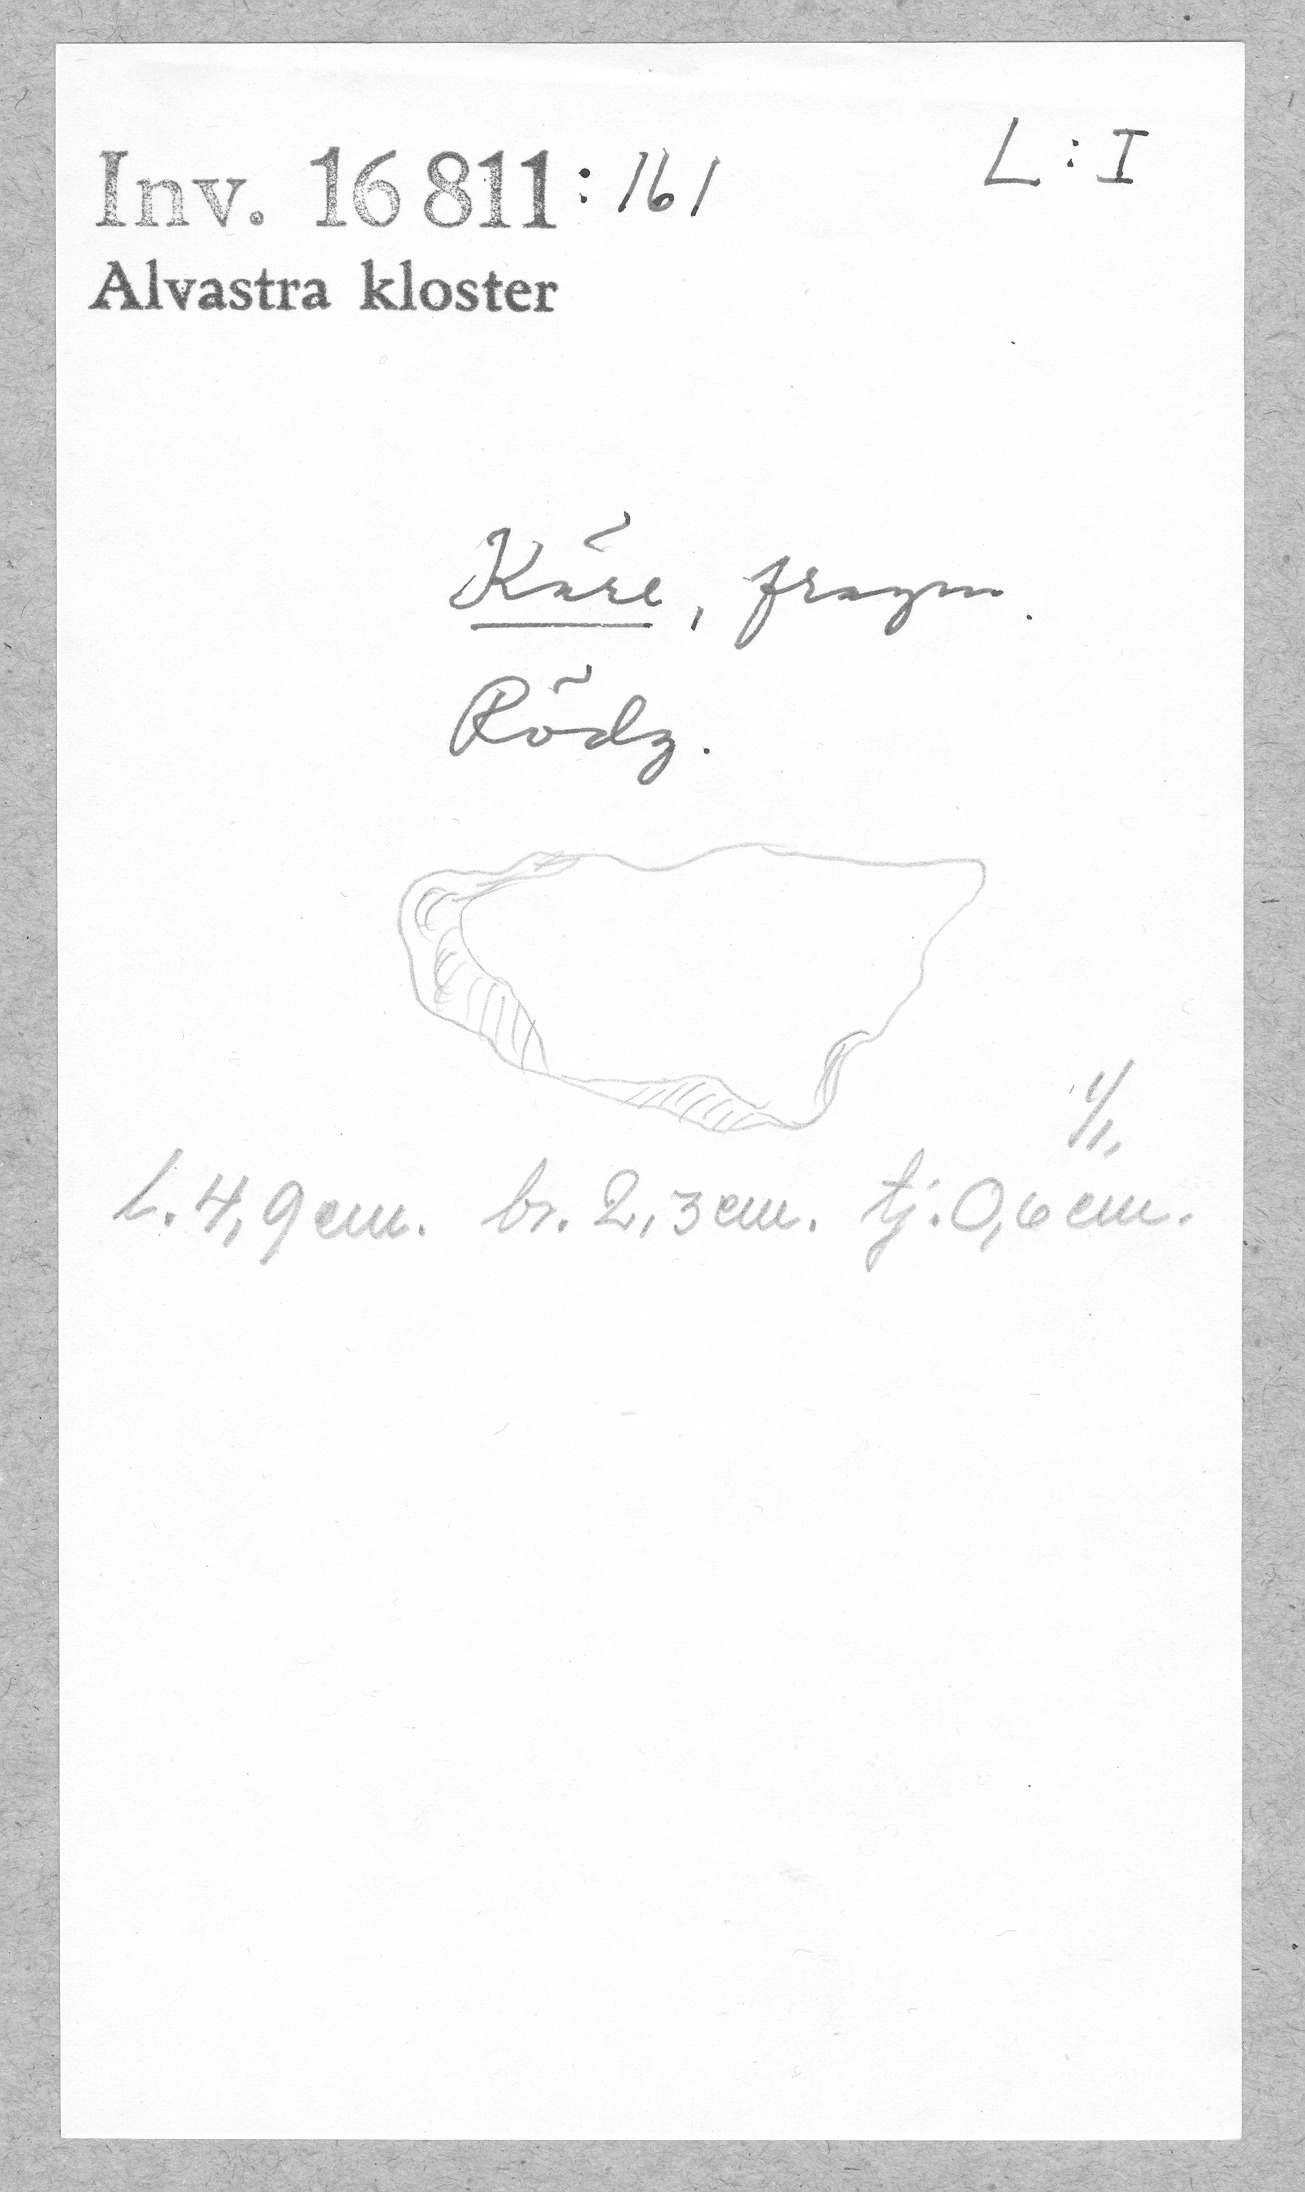 Inv. 16 811:161
L:I
Alvastra kloster
Kärl, fragm.
Rödg.
1/1.
l. 4,9 cm. br. 2,3 cm. tj. 0,6 cm.